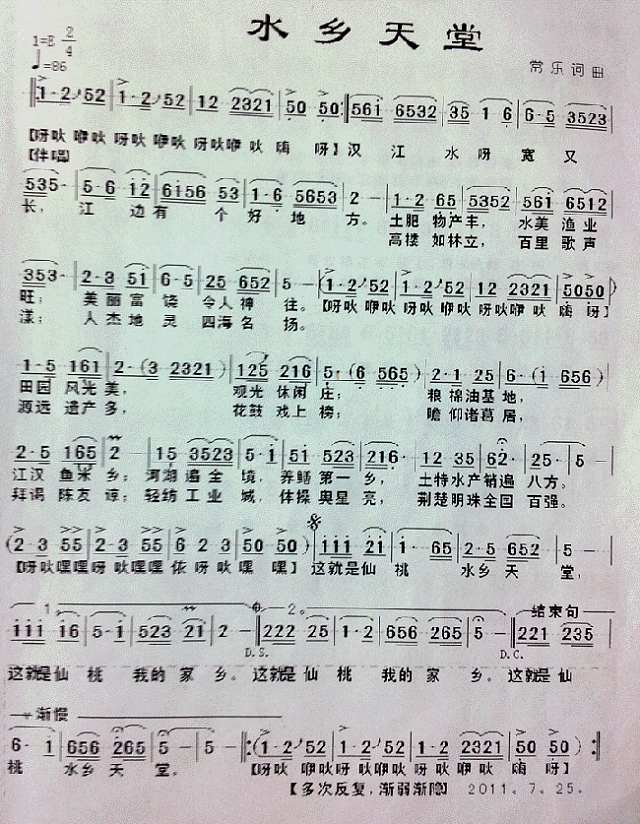 水乡天堂
1=E 2/4
♩=86
常乐词曲
‖: 1·2 52 | 1·2 52 | 12 2321 | 50 50 :‖ 561 6532 | 35 1 6 | 6·5 3523 |
【呀吙咿吙 呀吙咿吙 呀吙咿吙 嗨 呀】汉 江 水呀 宽 又
【伴唱】
535· | 5·6 12 | 6156 53 | 1·6 5653 | 2 - | 1·2 65 | 5352 | 561 6512 |
长, 江 边有 个 好 地 方。 土肥 物产丰, 水美 渔业
高楼 如林立, 百里 歌声
353· | 2·3 51 | 6·5 | 25 652 | 5 - | (1·2 52 | 1·2 52 | 12 2321 | 5050) |
旺; 美丽富饶 令人神 往。【呀吙咿吙呀吙咿吙呀吙咿吙 嗨呀】
漾; 人杰地灵 四海名 扬。
1·5 161 | 2·(3 2321) | 125 216 | 5·(6 565) | 2·1 25 | 6·(1 656) |
田园 风光美, 观光 休闲 庄; 粮 棉油基地,
源远 遗产多, 花鼓 戏上 榜; 瞻 仰诸葛居,
2·5 165 | 2 - | 15 3523 | 5·1 | 51 523 | 216· | 12 35 | 62· | 25· | 5 - |
江汉 鱼米 乡; 河湖遍全 境, 养鳝 第一 乡, 土特水产销遍 八方。
拜谒 陈友 谅; 轻纺工业 城, 体操 奥星 亮, 荆楚明珠全国 百强。
(2·3 55 | 2·3 55 | 5·2 3·2 | 50 50) | 111 21 | 1·65 | 2·5 652 | 5 - |
【呀吙嘿嘿呀吙嘿嘿 依呀吙嘿 嘿】这就是仙 桃 水乡 天 堂,
1。 2。 结束句
111 16 | 5·1 | 523 21 | 2 - | 222 25 | 1·2 | 656 265 | 5 - | 221 235 |
D.S. D.C.
这就是仙 桃 我的 家 乡。这就是仙 桃 我的 家 乡。这就是仙
渐慢
6·1 | 656 265 | 5 - | 5 - ‖: (1·2 52 | 1·2 52 | 1·2 2321 | 50 50) :‖
桃 水乡 天 堂, 【呀吙 咿吙呀吙 咿吙呀 吙 咿吙 嗨 呀】
【多次反复,渐弱渐隐】 2011。7。25.